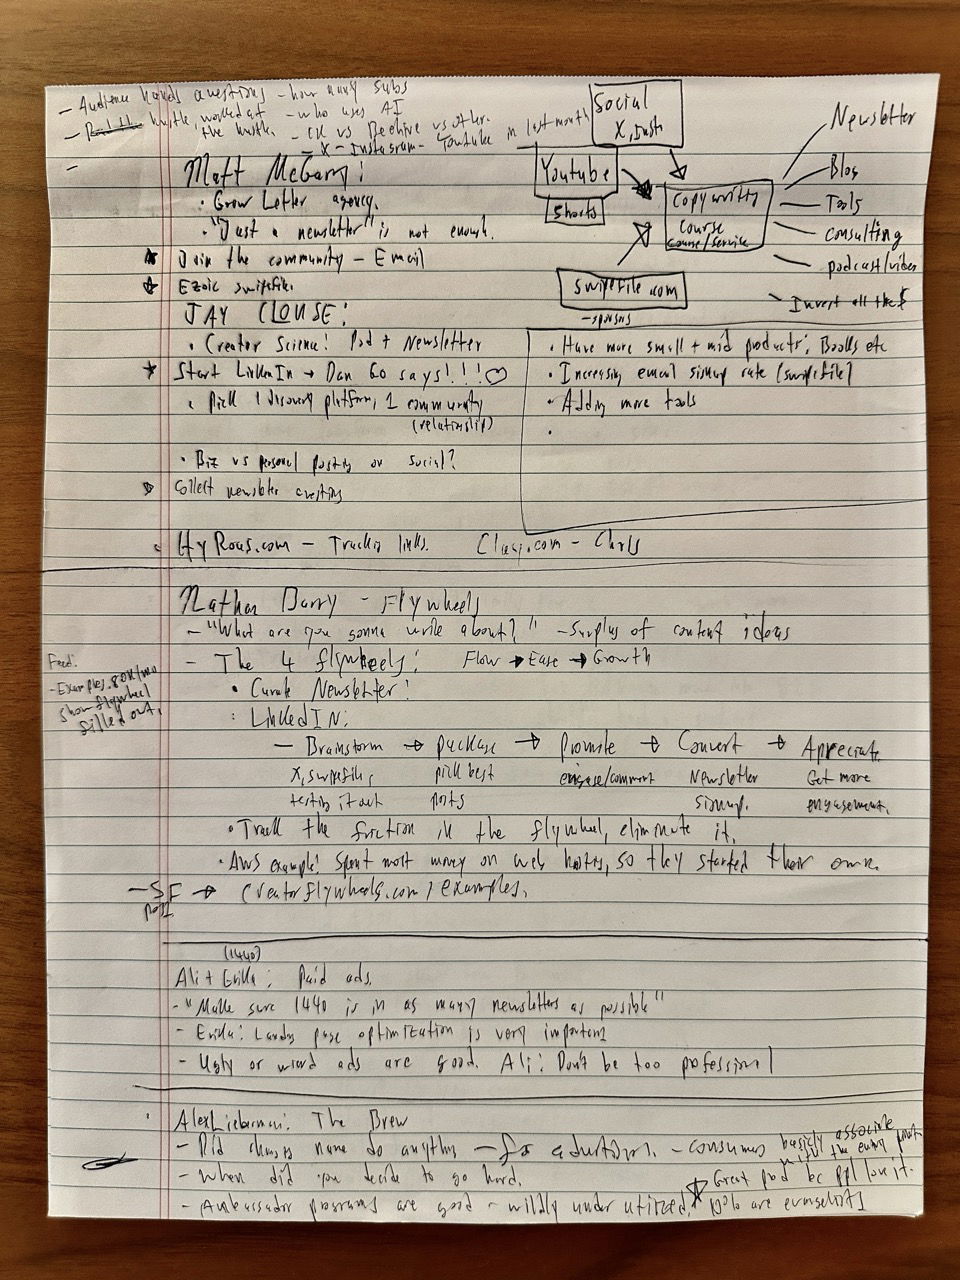 - Audience hands questions - how many subs
- hustle, worked at - who uses AI
the hustle. - CK vs Beehive vs other.
- X - Instagram - Youtube in last month
-
Social
X, Insta
Youtube
Shorts
Copywriting
Course
Course/service
swipefile.com
- sponsors
Newsletter
Blog
Tools
consulting
podcast/video
Invest all the $
Matt McGarry:
• Grow Letter agency.
• "Just a newsletter" is not enough.
Join the community - Email
Ezoic swipefile.
JAY CLOUSE:
• Creator Science: Pod + Newsletter
Start LinkedIn → Dan Go says!!!! ♡
• Pick 1 discovery platform, 1 community
(relationship)
• Biz vs personal posting on social?
Collect newsletter
• Have more small + mid products: Books etc
• Increasing email signup rate (swipefile)
• Adding more tools
•
- Tracking links.
Nathan Barry - Flywheels
- "What are you gonna write about?" - Surplus of content ideas
- The 4 flywheels: Flow → Ease → Growth
• Newsletter!
• LinkedIN:
- Brainstorm → package → Promote → Convert → Appreciate.
X, swipefile, pick best engage/comment Newsletter Get more
testing it out posts signup. engagement.
• Track the friction in the flywheel, eliminate it.
• AWS example: Spent most money on web hosting, so they started their own.
- SF → creatorflywheels.com/examples.
post
Feed:
- Examples. 80K/mo
show flywheel
filled out.
(1440)
Ali + Erika: Paid ads.
- "Make sure 1440 is in as many newsletters as possible"
- Erika: Landing page optimization is very important
- Ugly or weird ads are good. Ali: Don't be too professional
• Alex Lieberman: The Brew
- Did name do anything - for advertisers. - consumers basicly associate
with the
- When did you decide to go hard.
Great pod bc ppl love it.
- Ambassador programs are good - wildly under utilized. are evangelists